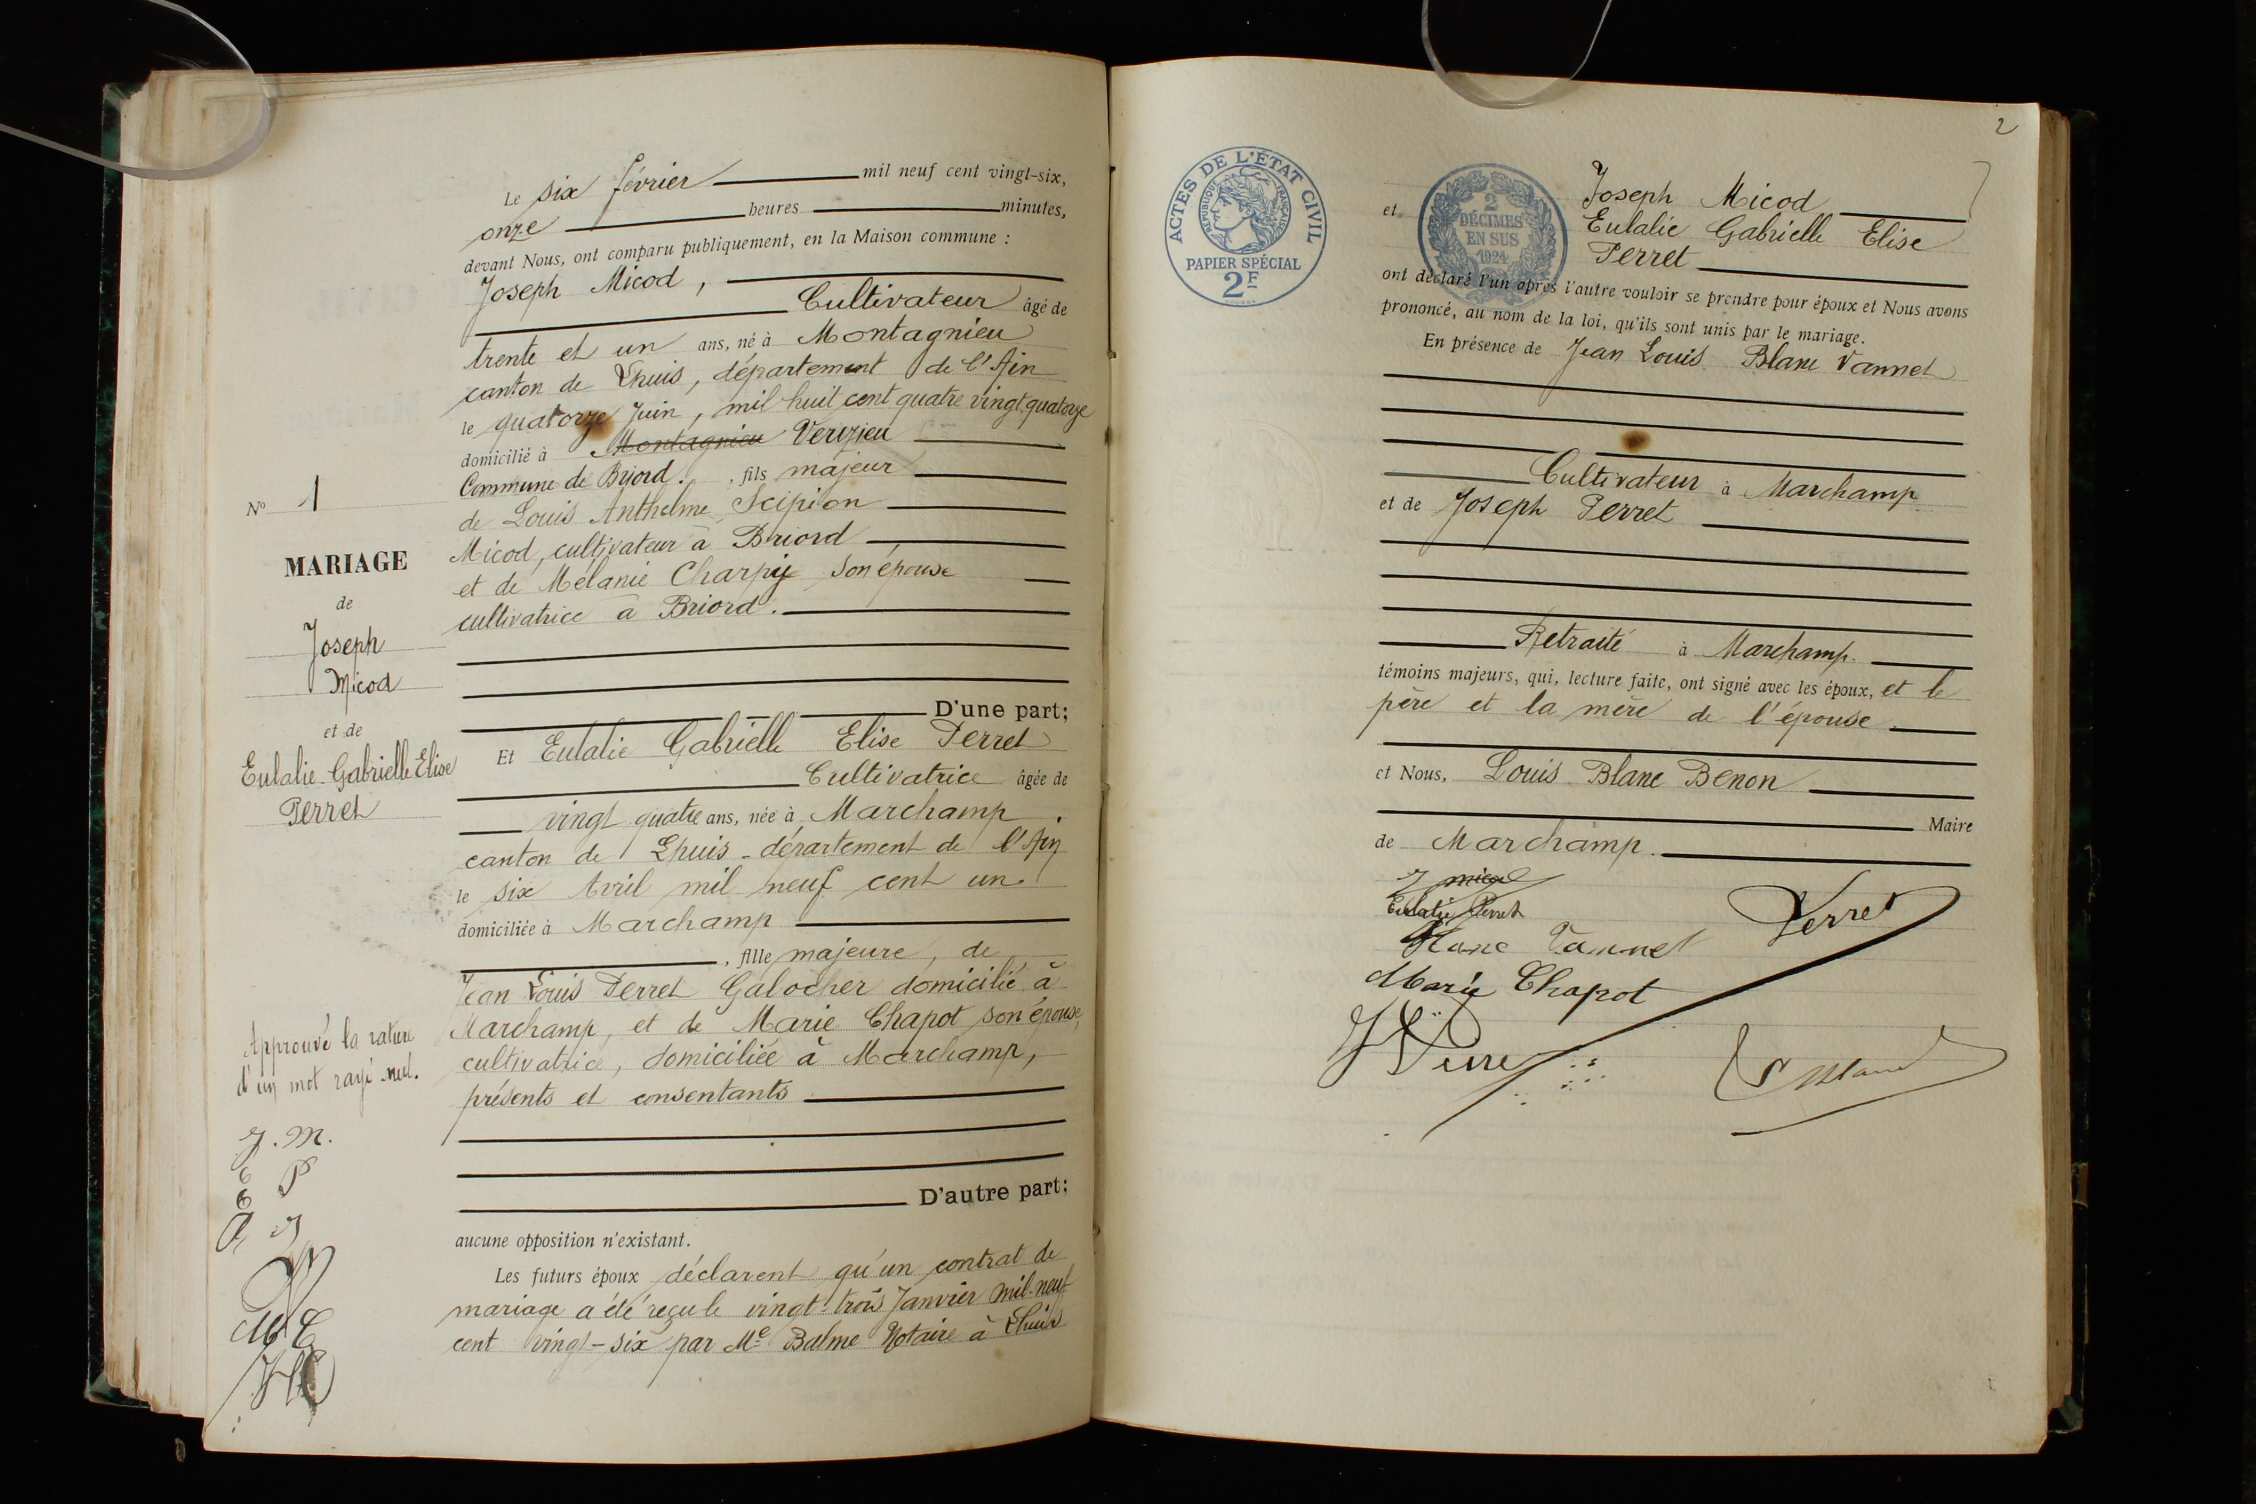 Le six février mil neuf cent vingt-six,
onze heures minutes,
devant Nous, ont comparu publiquement, en la Maison commune :
Joseph Micod,
Cultivateur âgé de
trente et un ans, né à Montagnieu
canton de Lhuis, département de l'Ain
le quatorze Juin, mil huit cent quatre vingt quatorze
domicilié à Montagnieu Verizieu
Commune de Briord. , fils majeur
de Louis Anthelme Scipion
Micod, cultivateur à Briord
et de Mélanie Charpy son épouse
cultivatrice à Briord.
D'une part;
Et Eulalie Gabrielle Elise Perret
Cultivatrice âgée de
vingt quatre ans, née à Marchamp.
canton de Lhuis - département de l'Ain
le six Avril mil neuf cent un.
domiciliée à Marchamp
, fille majeure, de
Jean Louis Perret Galocher domicilié à
Marchamp, et de Marie Chapot son épouse,
cultivatrice, domiciliée à Marchamp,
présents et consentants
D'autre part;
aucune opposition n'existant.
Les futurs époux déclarent qu'un contrat de
mariage a été reçu le vingt-trois Janvier mil-neuf
cent vingt-six par Me Balme Notaire à Lhuis
No 1
MARIAGE
de
Joseph
Micod
et de
Eulalie-Gabrielle Elise
Perret
Approuvé la rature
d'un mot rayé nul.
J. M.
E P
M C
2
ACTES DE L'ÉTAT CIVIL
RÉPUBLIQUE FRANÇAISE
PAPIER SPÉCIAL
2F
2
DÉCIMES
EN SUS
1924
Joseph Micod
et Eulalie Gabrielle Elise
Perret
ont déclaré l'un après l'autre vouloir se prendre pour époux et Nous avons
prononcé, au nom de la loi, qu'ils sont unis par le mariage.
En présence de Jean Louis Blanc Vannet
Cultivateur à Marchamp
et de Joseph Perret
Retraité à Marchamp.
témoins majeurs, qui, lecture faite, ont signé avec les époux, et le
père et la mère de l'épouse.
et Nous, Louis Blanc Benon
Maire
de Marchamp.
J micod
Eulalie Perret
Perret
Blanc Vannet
Marie Chapot
L Blanc